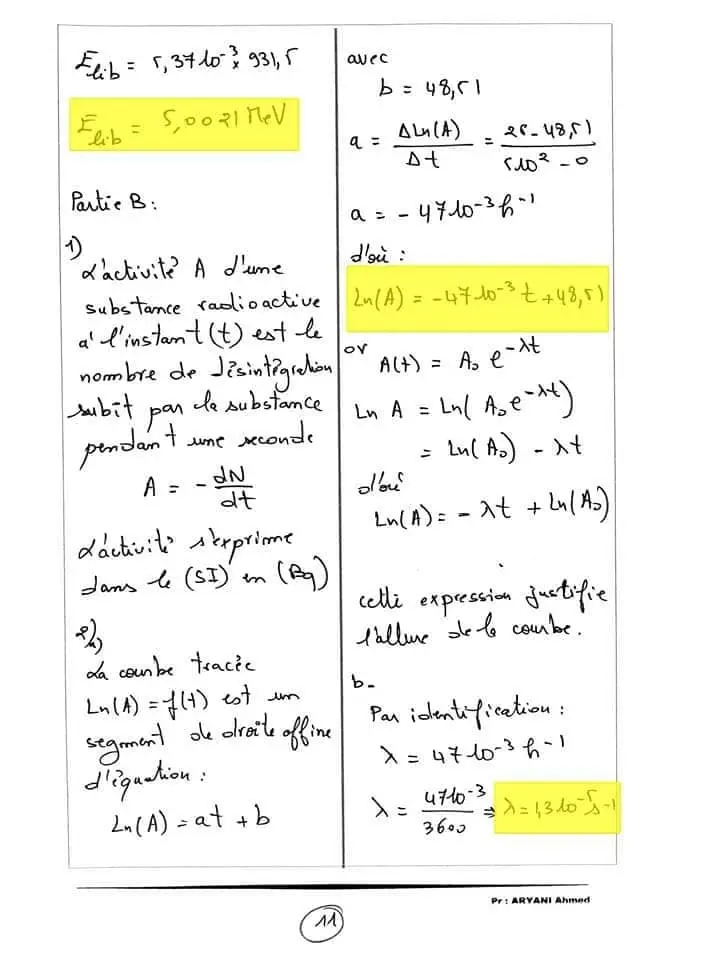 E_lib = 5,37 10⁻³ × 931,5
E_lib = 5,0021 MeV
Partie B :
1)
L'activité A d'une
substance radioactive
a' l'instant (t) est le
nombre de désintégration
subit par la substance
pendant une seconde
A = - dN/dt
L'activité s'exprime
dans le (SI) en (Bq)
2/a)
La courbe tracée
Ln(A) = f(t) est un
segment de droite affine
d'équation :
Ln(A) = at + b
avec
b = 48,51
a = ΔLn(A)/Δt = (25 - 48,51)/(5 10² - 0)
a = - 47 10⁻³ h⁻¹
d'où :
Ln(A) = -47 10⁻³ t + 48,51
or
A(t) = A₀ e^(-λt)
Ln A = Ln( A₀ e^(-λt))
= Ln(A₀) - λt
d'où
Ln(A) = - λt + Ln(A₀)
cette expression justifie
l'allure de la courbe.
b-
Par identification :
λ = 47 10⁻³ h⁻¹
λ = 47 10⁻³/3600 ⇒ λ = 1,3 10⁻⁵ s⁻¹
Pr : ARYANI Ahmed
11